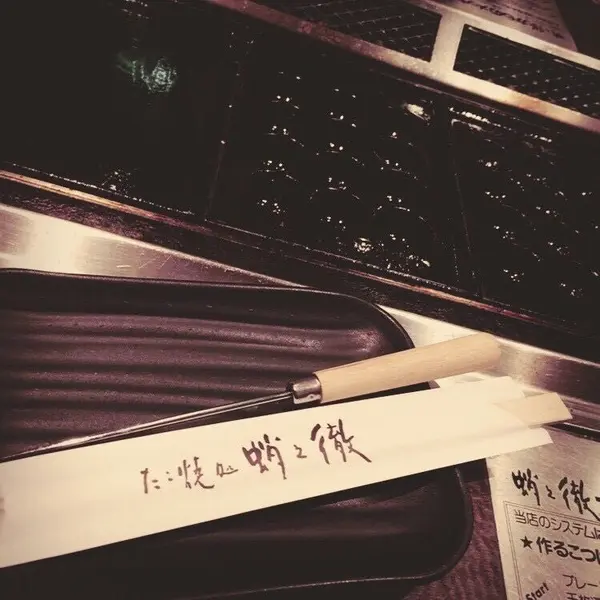 たこ焼処 蛸之徹
蛸之徹
当店のシステムは
★作るこつ
Start
プレー